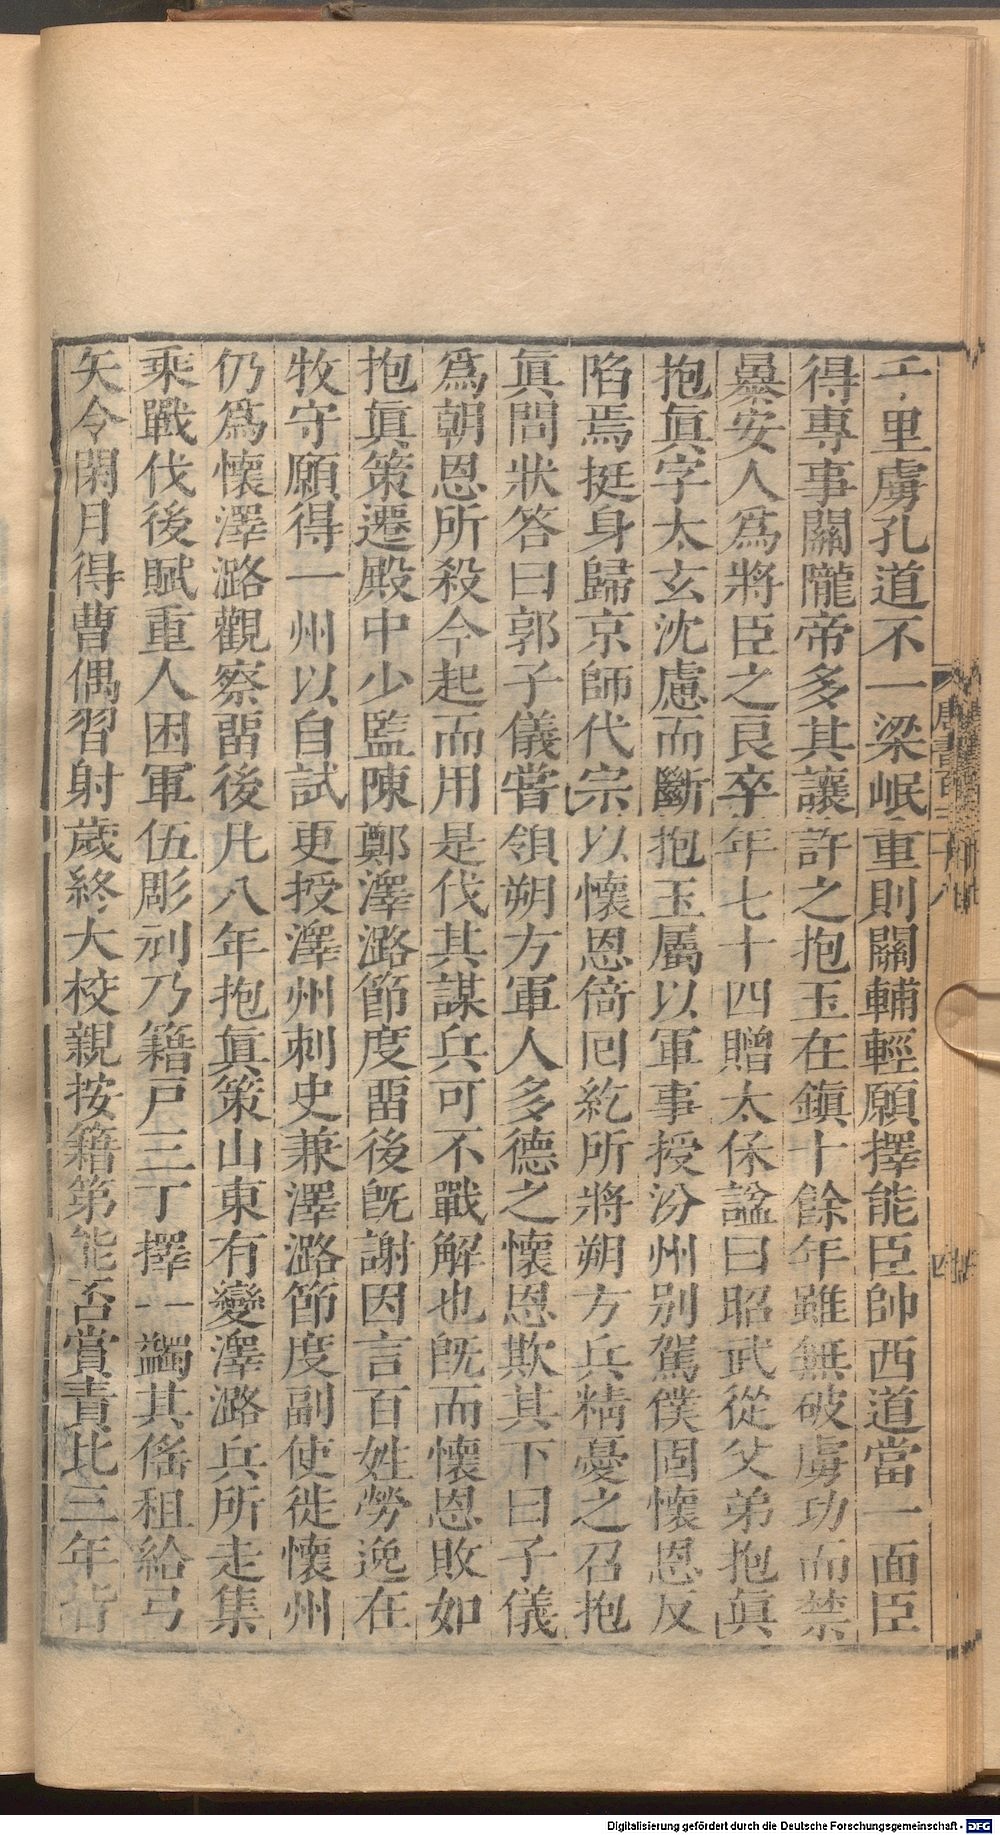 千里虜孔道不一梁岷重則關輔輕願擇能臣帥西道當一面臣
得專事關隴帝多其讓許之抱玉在鎮十餘年雖無破虜功而禁
㬥安人爲將臣之良卒年七十四贈太保諡曰昭武從父弟抱眞
抱眞字太玄沈慮而斷抱玉屬以軍事授汾州別駕僕固懷恩反
陷焉挺身歸京師代宗以懷恩倚回紇所將朔方兵精憂之召抱
眞問狀答曰郭子儀嘗領朔方軍人多德之懷恩欺其下曰子儀
爲朝恩所殺今起而用是伐其謀兵可不戰解也旣而懷恩敗如
抱眞策遷殿中少監陳鄭澤潞節度畱後旣謝因言百姓勞逸在
牧守願得一州以自試更授澤州刺史兼澤潞節度副使徙懷州
仍爲懷澤潞觀察畱後凡八年抱眞策山東有變澤潞兵所走集
乘戰伐後賦重人困軍伍彫刓乃籍戸三丁擇一蠲其傜租給弓
矢令閑月得曹偶習射歲終大校親按籍第能否賞責比三年皆
唐書百三十八
四
Digitalisierung gefördert durch die Deutsche Forschungsgemeinschaft - DFG